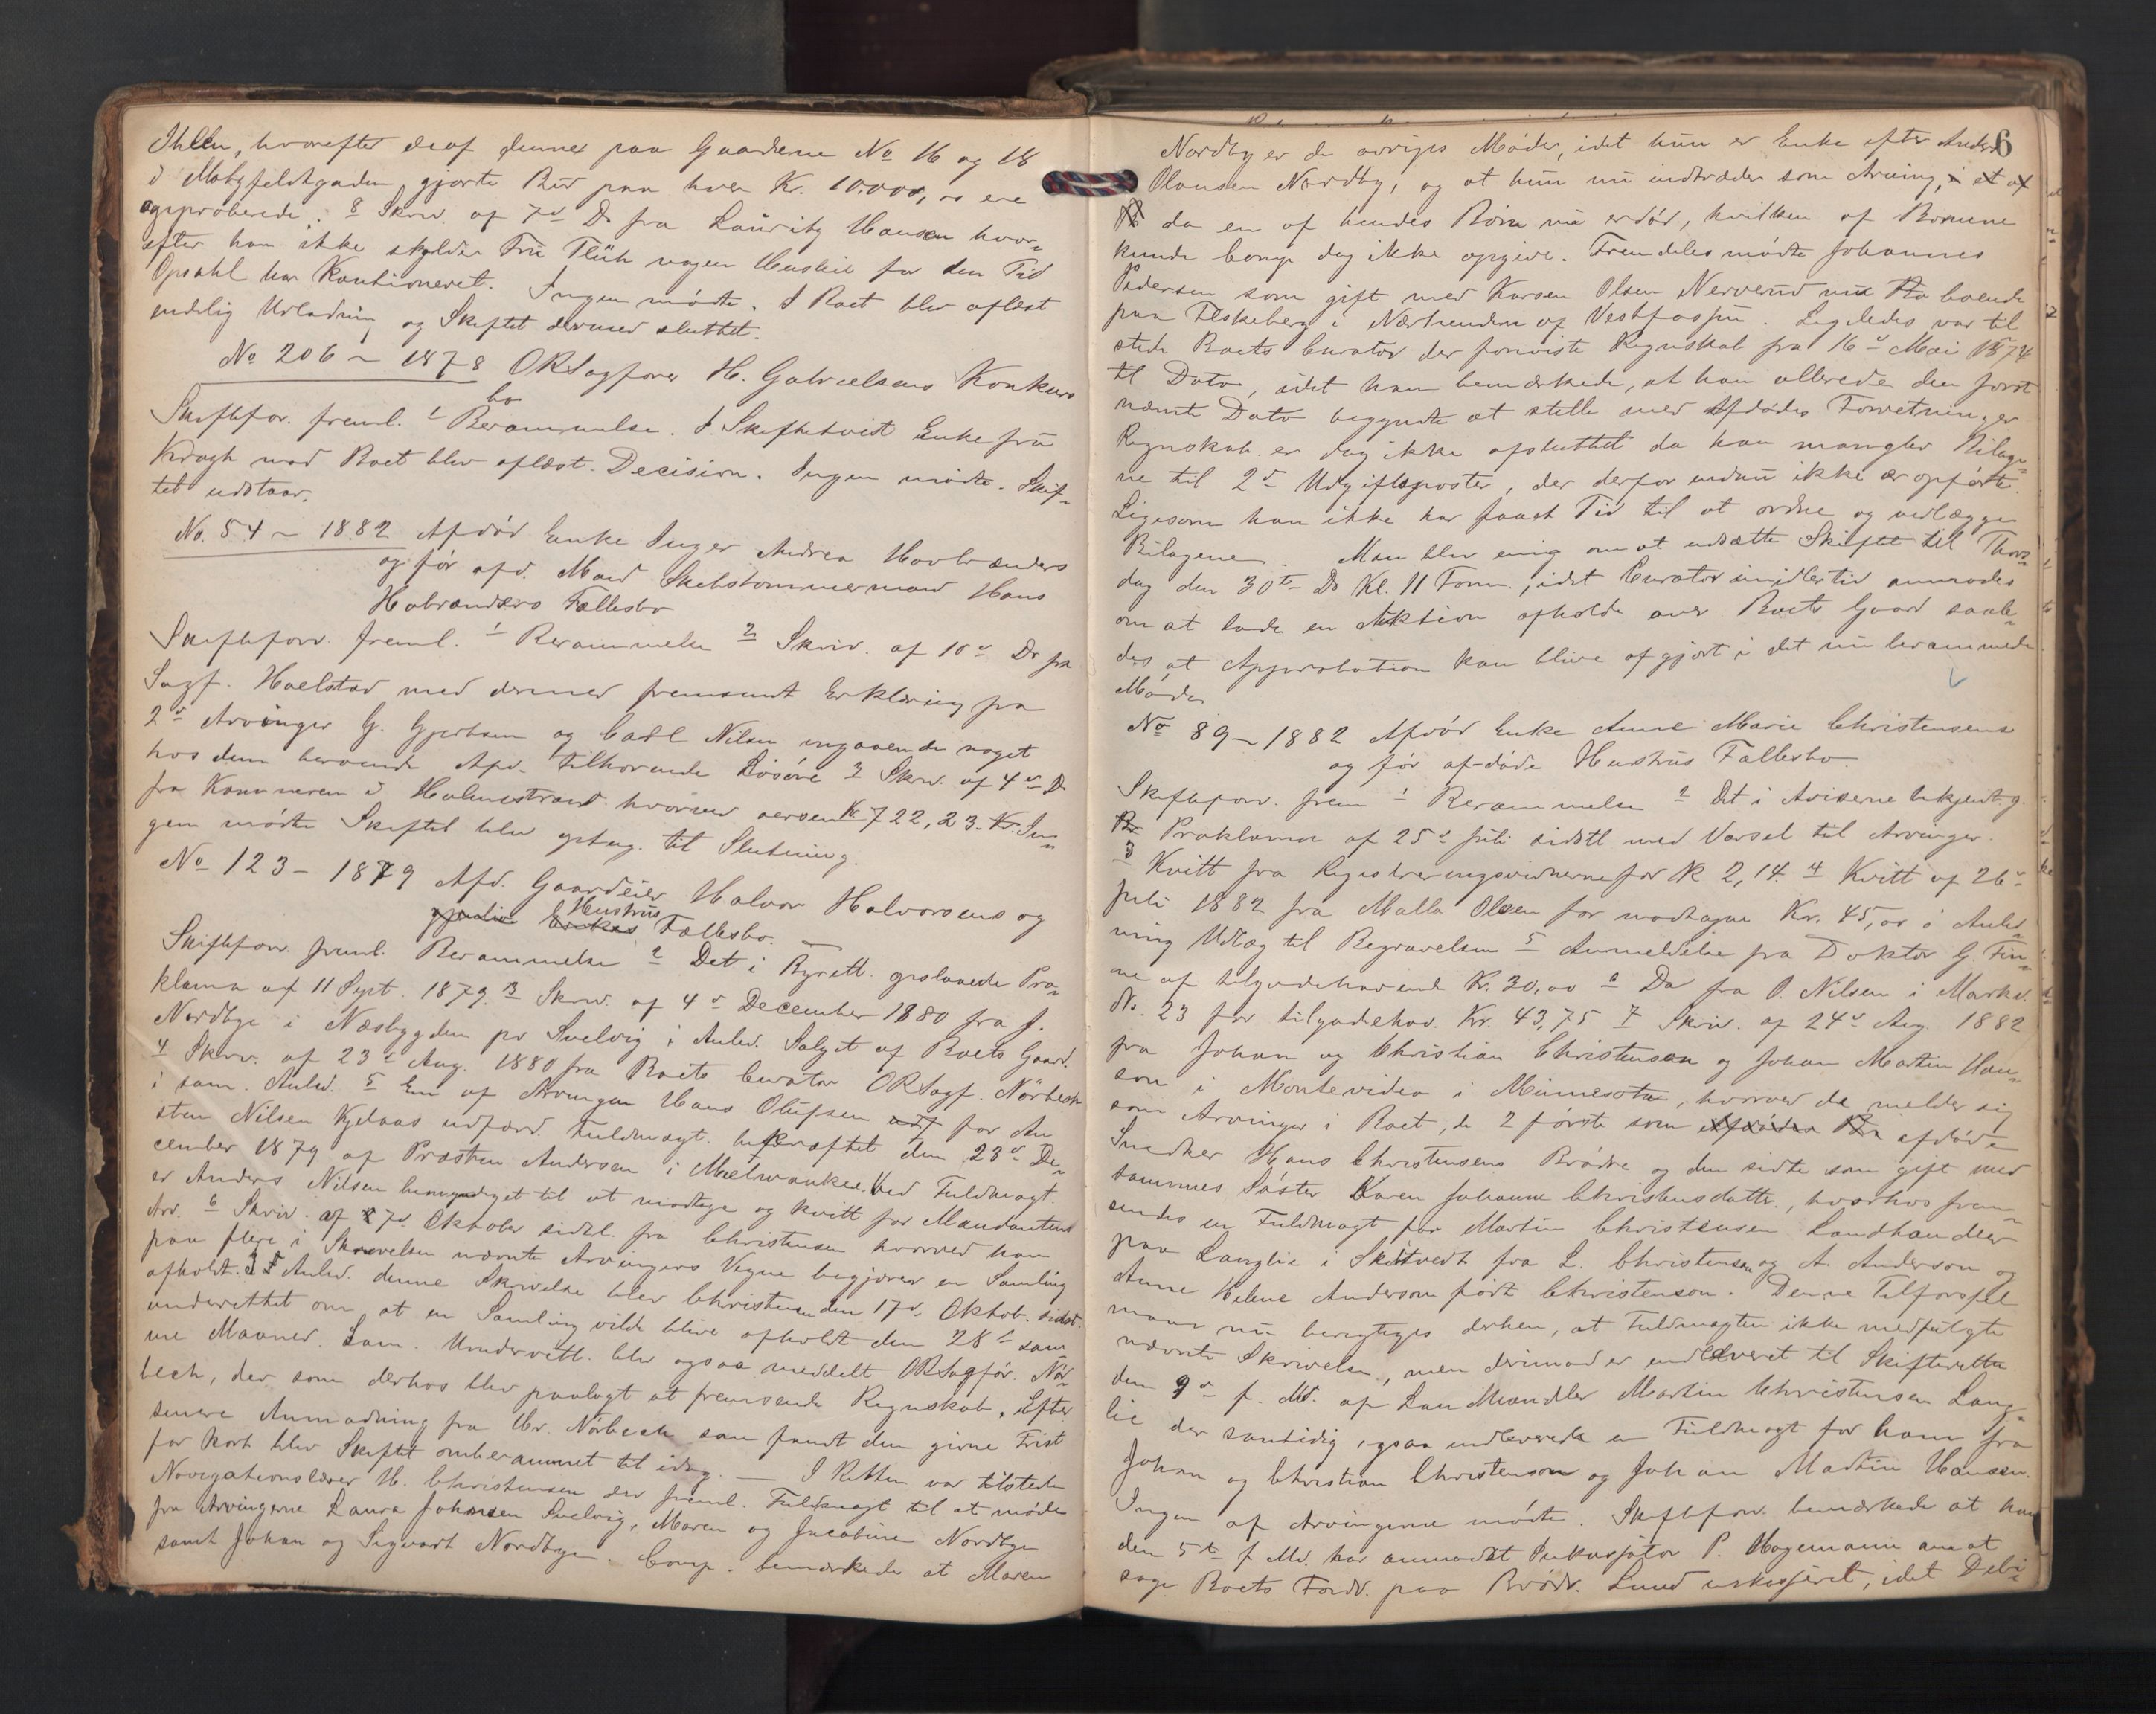 Ihlen, hvorefter deraf denne paa Gaardene No 16 og 18
i Motzfeldtgaden gjorte Bud paa hver Kr. 10.000, oo ere
approberede. 8 Skriv. af 7de Ds fra Lauritz Hansen hvor-
efter han ikke skylder Fru Flüh nogen Husleie for den Tid
Opsahl har Kautioneret. Ingen mødte. I Boet blev aflæst
endelig Udlodning og Skiftet dermed sluttet.
No 206 - 1878 ORSagfører H. Gabrielsens Konkurs
bo
Skifteforv. freml. 1 Berammelse. I Skiftetvist Enkefru
Krogh mod Boet blev aflæst Decision. Ingen mødte. Skif-
tet udstaar.
No. 54 - 1882 Afdød Enke Inger Andrea Hovbrænders
og før afd. Mand Skibstømmermand Hans
Hobrænders Fællesbo
Skifteforv. freml. 1 Berammelse 2 Skriv. af 10de Ds fra
Sagf. Hoelstad med dermed fremsendt Erklæring fra
2de Arvinger G. Gjertsen og Carl Nilsen angaaende noget
hos dem beroende Afd. tilhørende Løsøre 3 Skriv. af 4de Ds
fra Kæmneren i Holmestrand hvorved oversendt Kr 722,23. In-
gen mødte Skiftet blev optag. til Slutning.
No 123 - 1879 Afd. Gaardeier Halvor Halvorsens og
Hustrus
Fællesbo.
Skifteforv. freml. Berammelse 2 Det i Byrett. opslaaede Pro-
klama af 11 Sept. 1879. 3 Skriv. af 4de December 1880 fra J.
Nordbye i Næsbygden pr Svelvig i Anled. Salget af Boets Gaard.
4 Skriv. af 23de Aug. 1880 fra Boets Curator ORSagf. Nörbech
i sam. Anled. 5 En af Arvingen Hans Olufsen for An
sten Nilsen Kjelaas udfærd. Fuldmagt bekræftet den 23de De-
cember 1879 af Præsten Andersen i Mielwaukee. Ved Fuldmagt.
er Anders Nilsen bemyndiget til at modtage og kvitt for Mandantens
Arv. 6 Skriv. af 7de Oktober sidstl. fra Christensen hvorved han
paa flere i Skrivelsen nævnte Arvingers Vegne begjærer en Samling
afholdt. I Anled. denne Skrivelse blev Christensen den 17de Oktob. sidst.
underrettet om at en Samling vilde blive afholdt den 28de sam-
me Maaned. Sam. Underrett. blev ogsaa meddelt ORSagfør. Nör-
bech, der som derhos blev paalagt at fremsende Regnskab. Efter
senere Anmodning fra Hr. Nörbech som fandt den givne Frist
for kort blev Skiftet omberammet til idag. — I Retten var tilstede
Navigationslærer H. Christensen der freml. Fuldmagt til at møde
fra Arvingerne Laura Johnsen Svelvig, Maren og Jacobine Nordbye
samt Johan og Sigvart Nordbye. Comp. bemærkede at Maren
6
Nordby er de øvriges Moder, idet hun er Enke efter Anders
Olausen Nordby, og at hun nu indtræder som Arving,
da en af hendes Børn nu er død, hvilken af Børnene
kunde Comp. dog ikke opgive. Fremdeles mødte Johannes
Pedersen som gift med Karen Olsen Nerverud nu boende
paa Fiskeberg i Nærheden af Vestfossen. Ligeledes var til
stede Boets Curator der foreviste Regnskab fra 16de Mai 1874
til Dato, idet han bemærkede, at han allerede den først
nævnte Dato begyndte at stelle med Afdødes Forretninger
Regnskab. er dog ikke afsluttet da han mangler Bilage-
ne til 2de Udgiftsposter, der derfor endnu ikke er opførte.
Ligesom han ikke har faaet Tid til at ordne og vedlægge
Bilagene. Man blev enig om at udsætte Skiftet til Thors-
dag den 30te Ds Kl. 11 Form., idet Curator imidlertid anmodes
om at lade en Auktion afholde over Boets Gaard saale-
des at Approbation kan blive afgjort i det nu berammede
Møde.
No 89 - 1882 Afdød Enke Anne Marie Christensens
og før afdøde Hustrus Fællesbo.
Skifteforv. frem 1 Berammelse 2 Det i Aviserne bekjentg.
Proklama af 25de Juli sidstl med Varsel til Arvinger.
3 Kvitt fra Registreringsvidnerne for K 2,14. 4 Kvitt af 26de
Juli 1882 fra Malla Olsen for modtagne Kr. 45,oo i Anled-
ning Udlæg til Begravelsen 5 Anmeldelse fra Doktor G. Fin-
ne af tilgodehavende Kr. 30,oo 6 Do fra O. Nilsen i Markv.
No. 23 for tilgodehav. Kr. 43,75 7 Skriv. af 24de Aug. 1882
fra Johan og Christian Christensen og Johan Martin Han-
sen i Montevideo i Minnesota, hvorved de melder sig
som Arvinger i Boet, de 2 første som afdøde
Snedker Hans Christensens Brødre og den sidste som gift med
sammes Søster Karen Johanne Christensdatter, hvorhos frem-
sendes en Fuldmagt for Martin Christensen Landhandler
paa Langlie i Skiltvedt fra L. Christensen og A. Anderson og
Anne Helene Anderson født Christenson. Denne Tilførsel
maa nu berigtiges derhen, at Fuldmagten ikke medfulgte
nævnte Skrivelse, men derimod er indleveret til Skifteretten
den 9de f. Md. af Landhandler Martin Christensen Lang-
lie der samtidig ogsaa indleverede en Fuldmagt for ham fra
Johan og Christian Christenson og Johan Martin Hansen.
Ingen af Arvingerne mødte. Skifteforv. bemærkede at han
den 5te f Md. har anmodet Inkassator P. Hagemann om at
søge Boets Fordr. paa Brødr. Lund inkasseret, idet Debi-